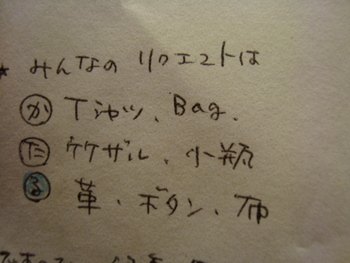 ★ みんなの リクエストは
か Tシャツ、Bag、
た ケケザル、小瓶
る 革、ボタン、布